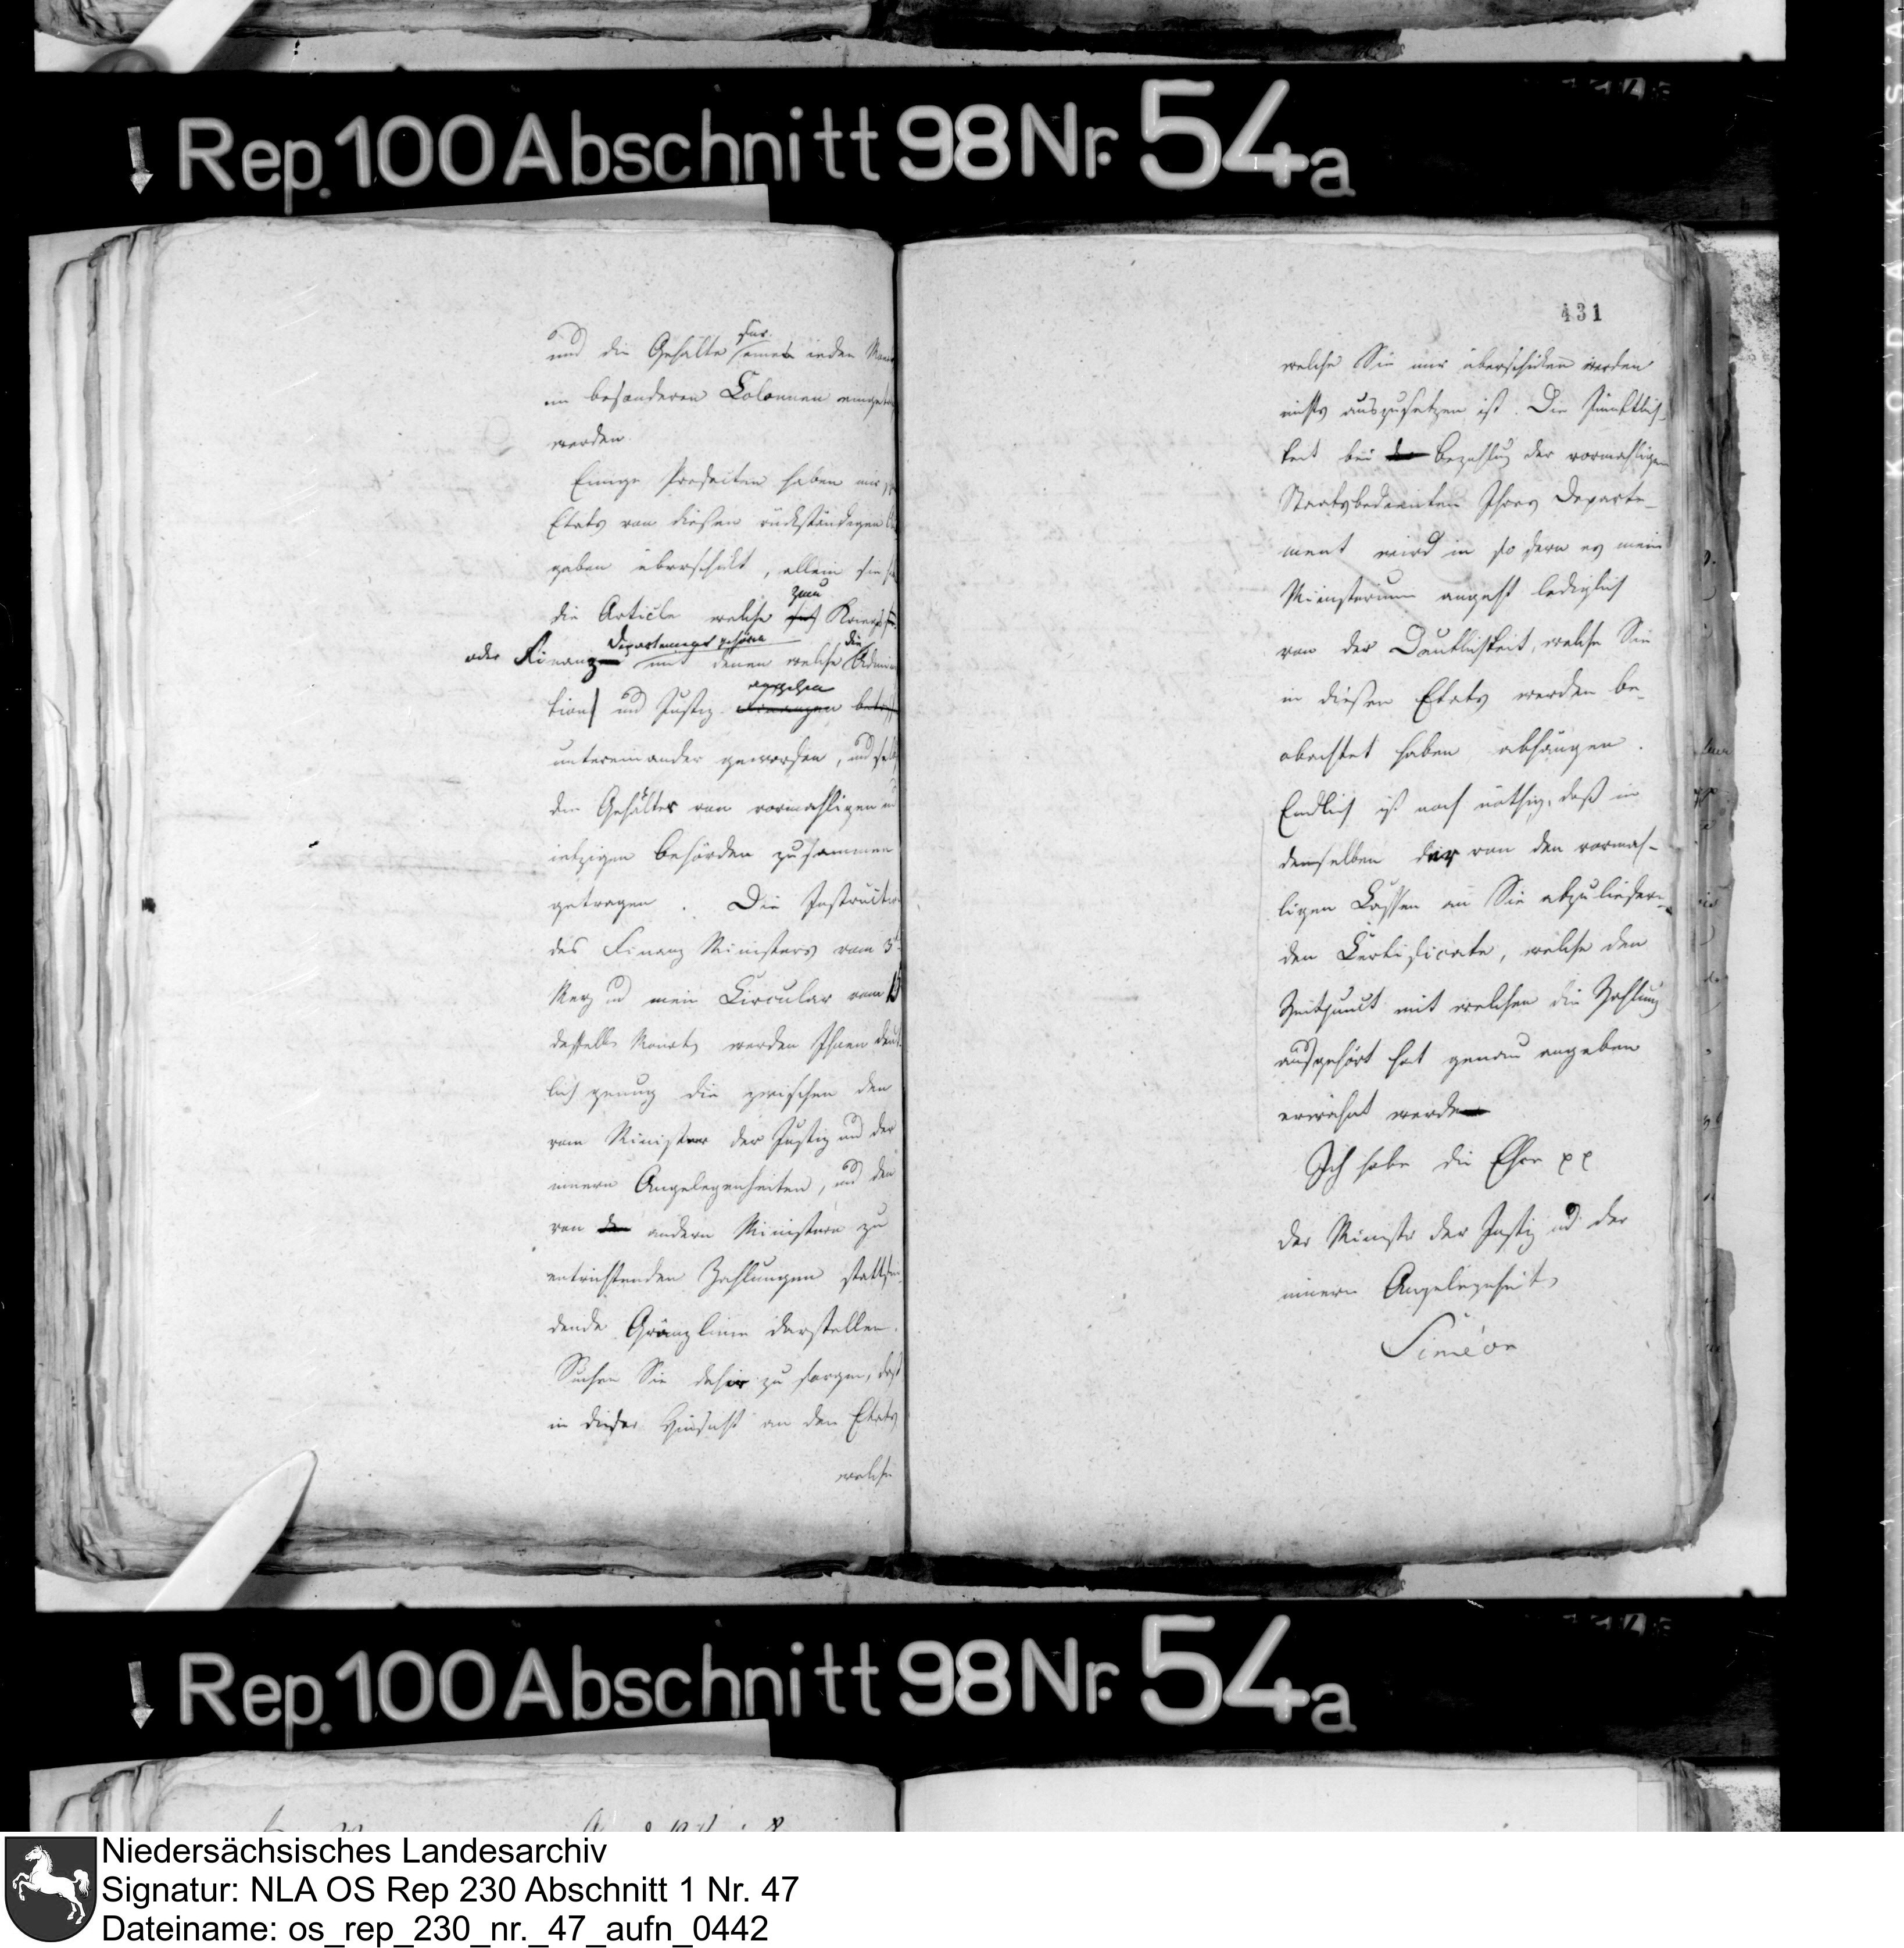 Rep. 100 Abschnitt 98 Nr. 54a
und die Gehälte für einen jeden
in besonderen Colonnen eingetra
werden.
Einige Präfecten haben mir
Etats von diesen rückständigen
gaben überschikt, allein sie
die Article welche zum Kriegs
oder Finanz Departement gehören mit denen welche die Admini
tion und Justiz angehen
untereinander geworfen, und selb
den Gehälter von vormahligen und
ietzigen Behörden zusammen
getragen. Die Instructio
des Finanz Ministers vom 3t
Merz und mein Circular vom
desselb. Monats werden Ihnen deut
lich genug die zwischen den
vom Minister der Justiz und der
innern Angelegenheiten, und den
von andern Ministern zu
entrichtenden Zahlungen stattfin
dende Gränzlinie darstellen.
Suchen Sie dafür zu sorgen, daß
in dieser Hinsicht an den Etats
welche
431
welche Sie mir überschicken werden
nichts auszusetzen ist. Die Pünktlich-
keit bei Bezahlung der vormahligen
Staatsbedienten Ihres Departe-
ment wird in so fern es mein
Ministerium angeht lediglich
von der Deutlichkeit, welche Sie
in diesen Etats werden be-
obachtet haben abhängen.
Endlich ist noch nöthig, daß in
denselben der von den vormah-
ligen Cassen an Sie abzuliefern-
den Certificate, welche den
Zeitpunct mit welchen die Zahlung
aufgehört hat genau angeben
erwähnt werde
Ich habe die Ehre pp
Der Minister der Justiz und der
innern Angelegenheit.
Siméon
Rep. 100 Abschnitt 98 Nr. 54a
Niedersächsisches Landesarchiv
Signatur: NLA OS Rep 230 Abschnitt 1 Nr. 47
Dateiname: os_rep_230_nr._47_aufn_0442